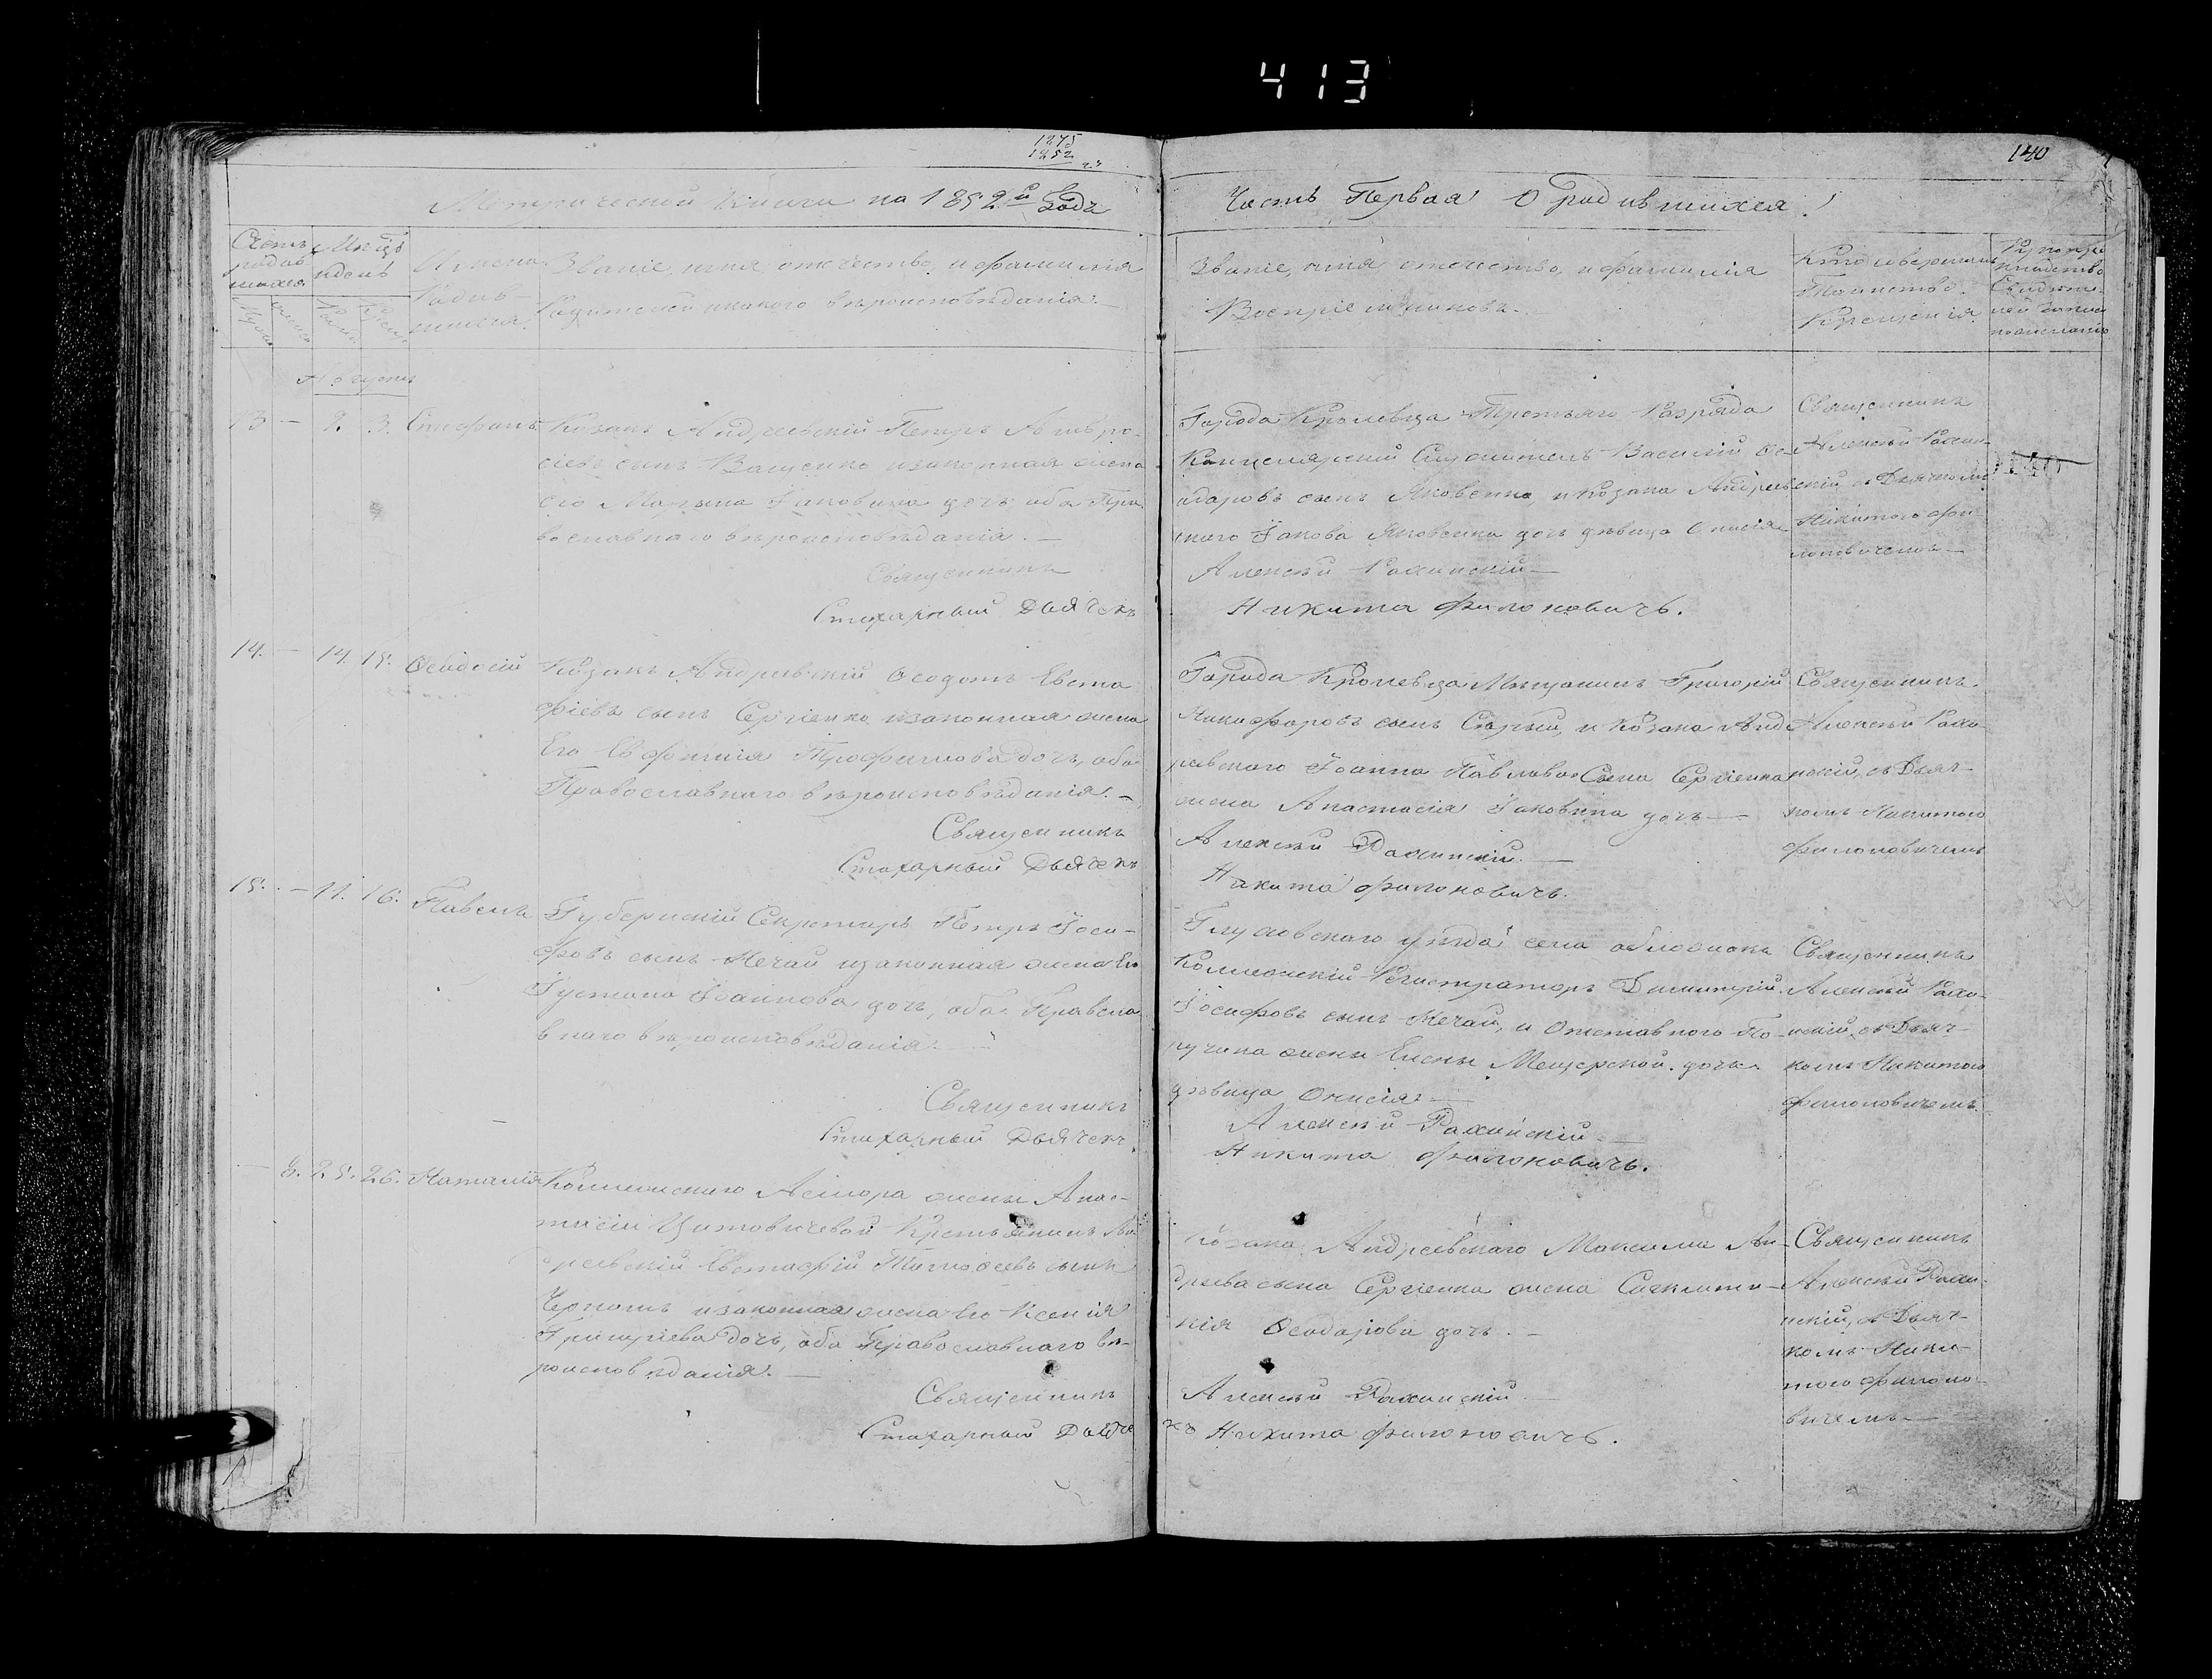 413
1275
1852
140
Метрической Книги на 1852й Годъ
Часть Первая О родившихся
Счетъ родив шихся
Мѣсяцъ и день
Имена Родив- шихся.
Званіе, имя, отчество, и фамилія
Родителей и какого вѣроисповѣданія.
Званіе, имя отчество, и фамилія
Воспріемниковъ.
Кто совершалъ
Таинство
Крещенія
Августъ
13 — 2. 3. Стефанъ
Козакъ Андреевскій Петръ Амвро-
сіевъ сынъ Ващенко и законная жена
его Марьяна Іаковлева дочь оба Пра
вославнаго вѣроисповѣданія. —
Священникъ
Стихарный Дьячекъ
Города Кролевца Третьяго Разряда
Канцелярскій Служитель Василій Ѳе-
одоровъ сынъ Яковенко, и Козака Андреев
скаго Іакова Яковенка дочь дѣвица
Алексѣй Рахинскій —
Никита Филоновичъ.
Священникъ
Алексѣй Рахин-
скій съ Дьячкомъ
Никитою Фи-
лоновичемъ —
14. — 14. 15. Ѳеодосій
Козакъ Андреевскій Ѳеодотъ Евста
фіевъ сынъ Сергіенко и законная жена
Его Евфимія Трофимова дочь, оба
Православнаго вѣроисповѣданія. —
Священникъ
Стихарный Дьячекъ
Города Кролевца Мѣщанинъ Григорій
Никифоровъ сынъ Сѣрый, и Козака Анд
реевскаго Іоанна Павлова Сына Сергіенка
жена Анастасія Іаковлева дочь —
Алексѣй Рахинскій. —
Никита Филоновичъ.
Священникъ
Алексѣй Рахи-
нскій, съ Дьяч-
комъ Никитою
Филоновичемъ
15. — 11. 16. Павелъ
Губернскій Секретарь Петръ Іоси-
фовъ сынъ Нечай и законная жена Его
Іустина Іоаннова дочь, оба Правосла
внаго вѣроисповѣданія. —
Священникъ
Стихарный Дьячекъ.
Глуховскаго уѣзда села Обложокъ
Коллежскій Регистраторъ Димитрій
Іосифовъ сынъ Нечай, и Отставного По-
ручика жены Елены Мещерской дочь
дѣвица
Алексѣй Рахинскій —
Никита Филоновичъ.
Священникъ
Алексѣй Рахи-
нскій, съ Дьяч-
комъ Никитою
Филоновичемъ.
— 8. 25. 26. Наталія
Коллежскаго жены Анас-
тасіи Цитовичевой Крестьянинъ Ан
дреевскій Евстафій Тимоѳеевъ сынъ
и законная жена Его Ксенія
Григоріева дочь, оба Православнаго вѣ-
роисповѣданія. —
Священникъ
Стихарный Дьяче
Козака Андреевскаго Максима Ан-
дреева сына Сергіенка жена
Ѳеодорова дочь. —
Алексѣй Рахинскій —
къ Никита Филоновичъ.
Священникъ
Алексѣй Рахи-
нскій, съ Дьяч-
комъ Ники-
тою Филоно-
вичемъ —